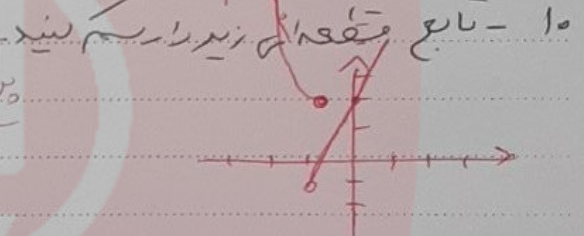 ۱۰ - تابع قطعه‌ای زیر را رسم کنید.